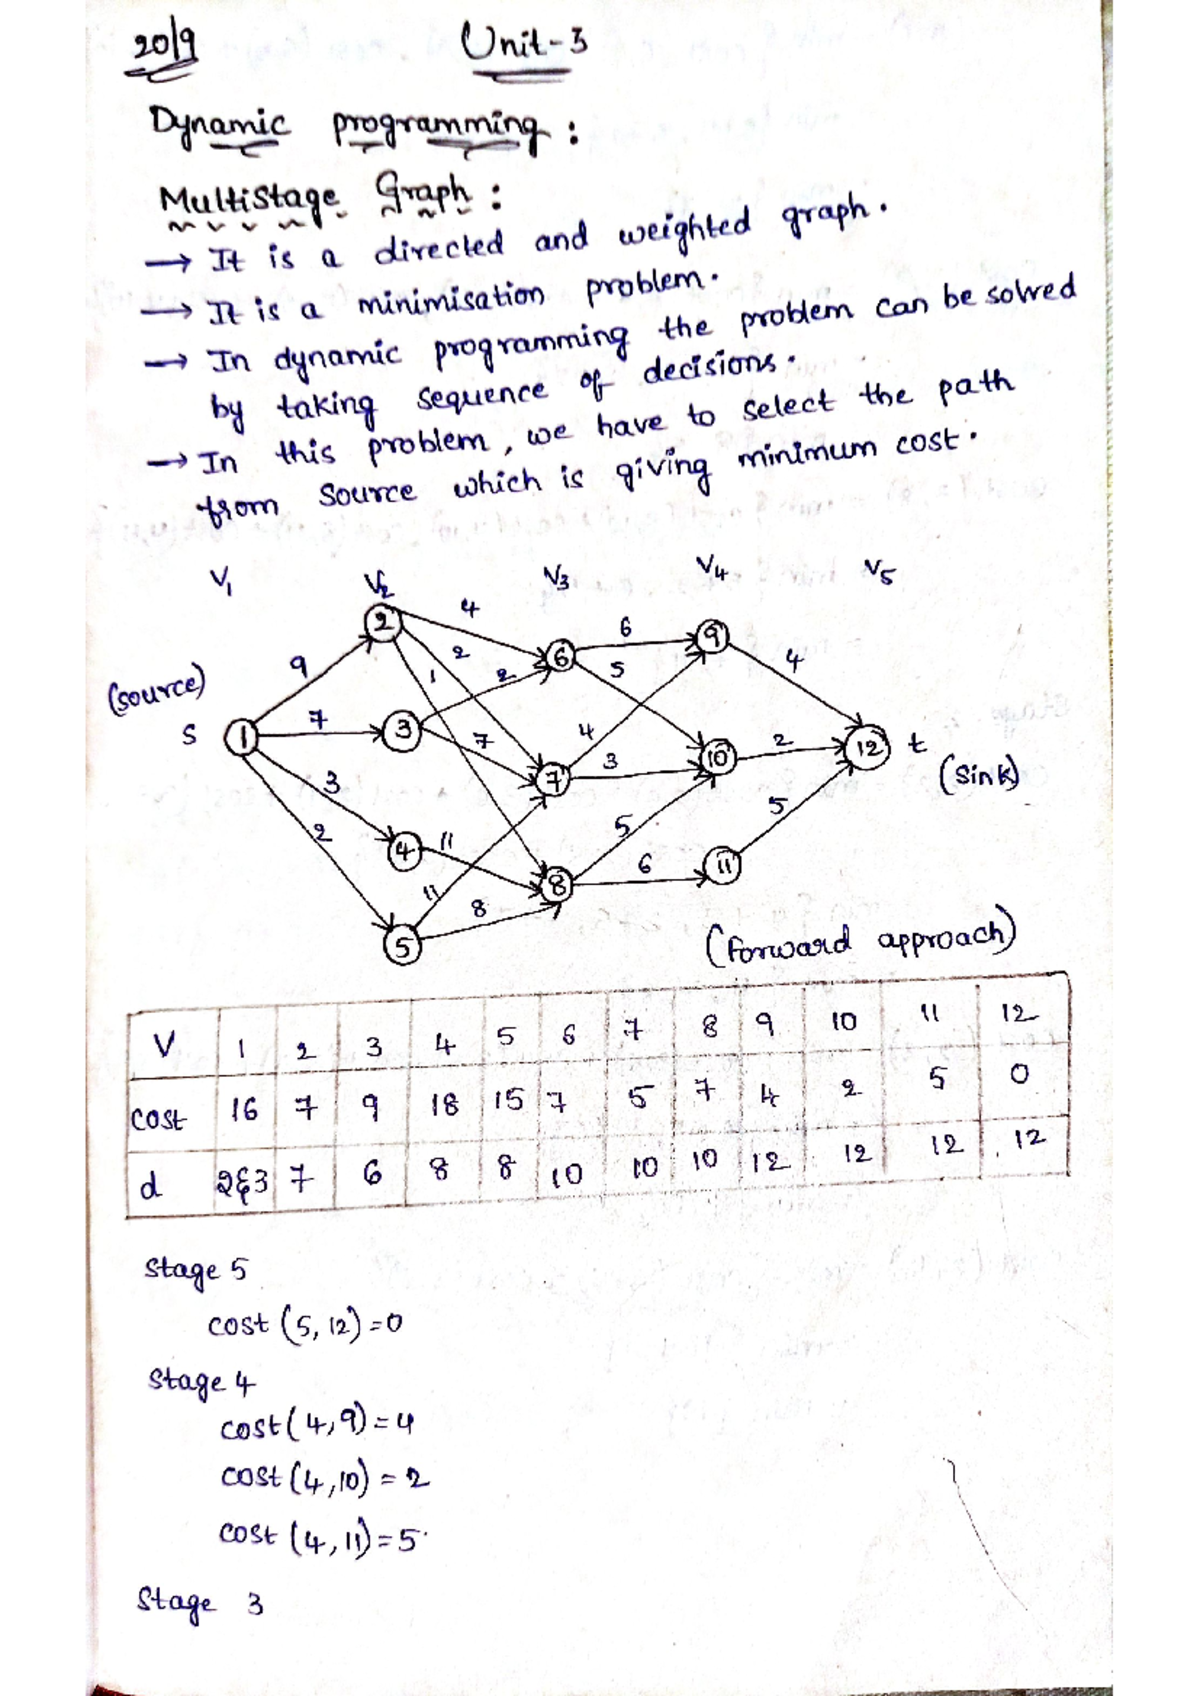 20/9
Unit-3
Dynamic programming :
Multistage Graph :
→ It is a directed and weighted graph.
→ It is a minimisation problem.
→ In dynamic programming the problem can be solved
by taking sequence of decisions.
→ In this problem, we have to select the path
from source which is giving minimum cost.
V1 V2 V3 V4 V5
2 4 6 6 9
9 2 1 2 5 4
(source)
S 1 7 3 7 4 3 10 2 12 t
(sink)
3 7
2 4 11 5 5
11 8 6 11
5 8
(forward approach)
V 1 2 3 4 5 6 7 8 9 10 11 12
cost 16 7 9 18 15 7 5 7 4 2 5 0
d 2&3 7 6 8 8 10 10 10 12 12 12 12
Stage 5
cost (5, 12) = 0
Stage 4
cost (4, 9) = 4
cost (4, 10) = 2
cost (4, 11) = 5
Stage 3